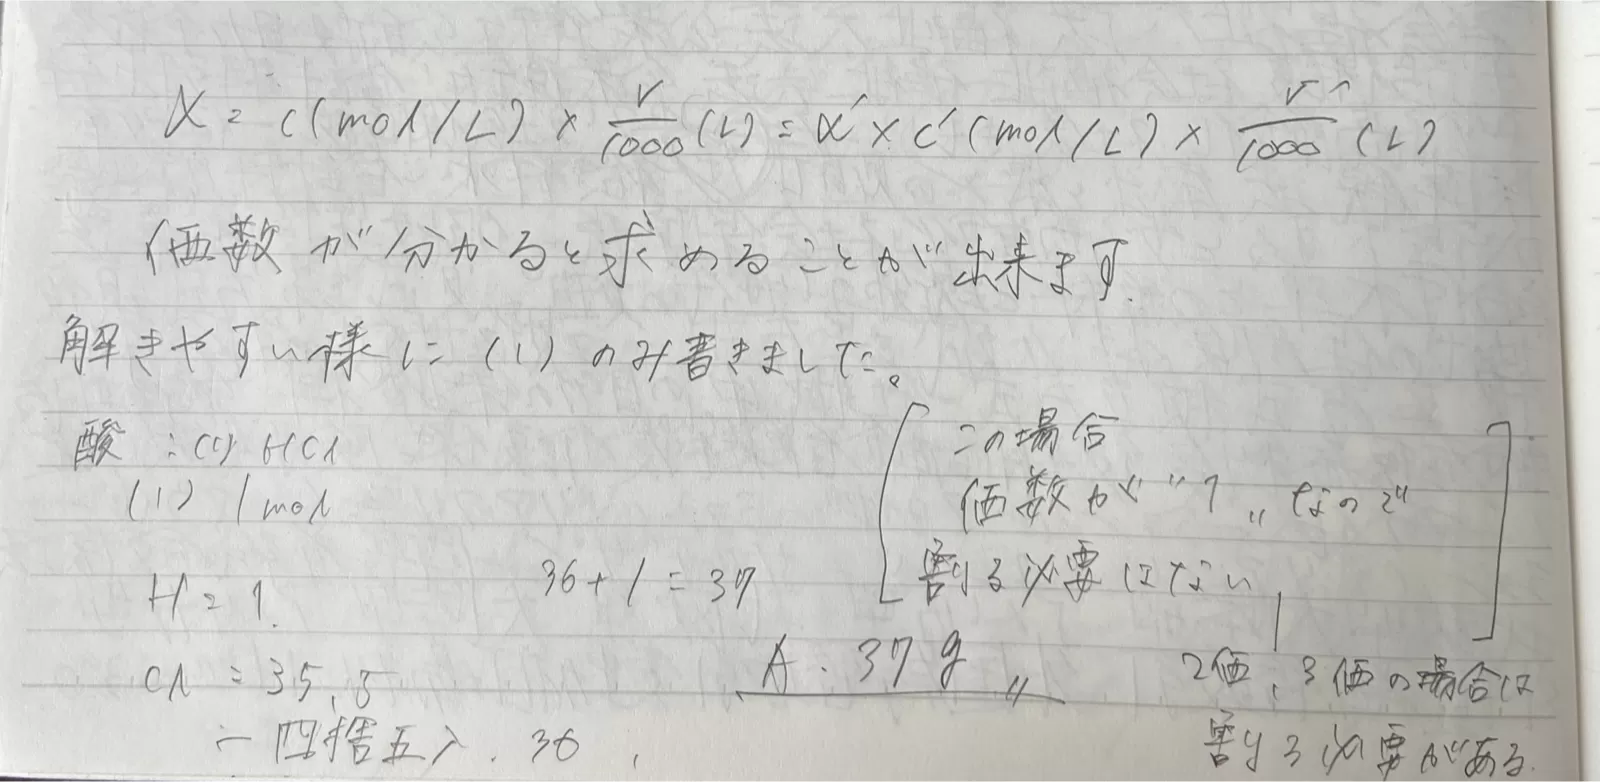 α = c(mol/L) × V/1000 (L) = α' × c'(mol/L) × V'/1000 (L)
価数が分かると求めることが出来ます.
解きやすい様に(1)のみ書きました。
酸:(1) HCl
(1) 1mol
H = 1.
Cl = 35.5
→四捨五入. 36,
36+1=37
A. 37g〃
この場合
価数が"1〃なので
割る必要はない
2価,3価の場合は
割る必要がある.